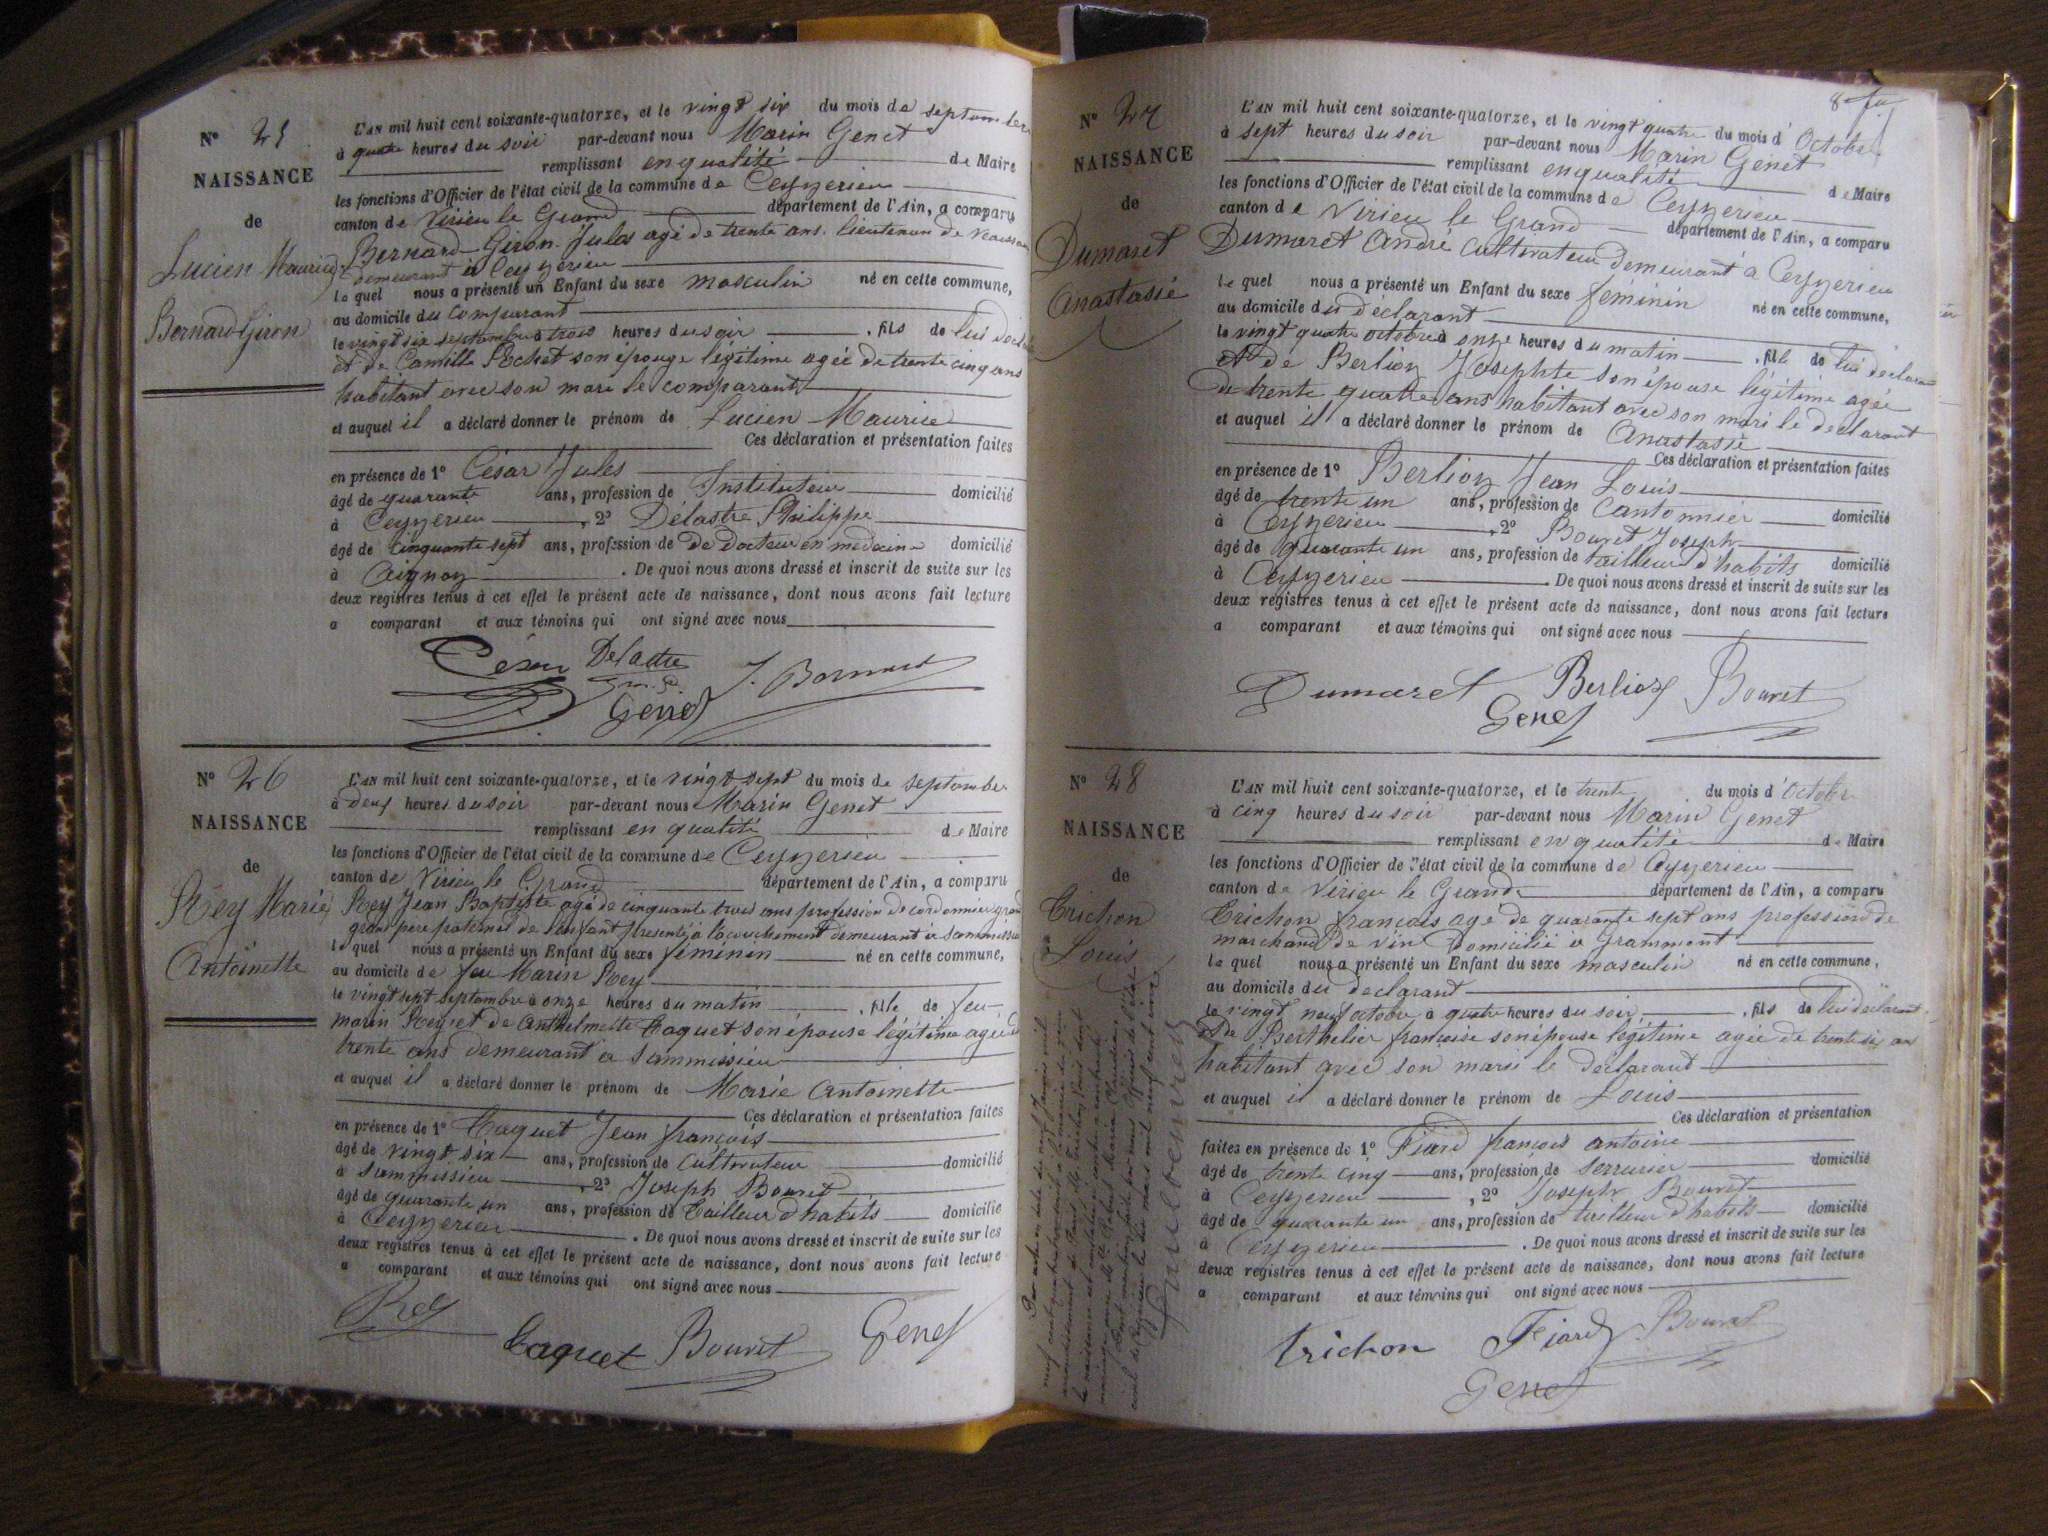 N° 25
NAISSANCE
de
Lucien Maurice
Bernard-Giron
L'AN mil huit cent soixante-quatorze, et le vingt six du mois de septembre
à quatre heures du soir par-devant nous Marin Genet
remplissant en qualité de Maire
les fonctions d'Officier de l'état civil de la commune de Ceyzerieu
canton de Virieu le Grand département de l'Ain, a comparu
Bernard-Giron Jules agé de trente ans. lieutenan de
demeurant à Ceyzerieu
le quel nous a présenté un Enfant du sexe masculin né en cette commune,
au domicile du comparant
le vingt six septembre à trois heures du soir . fils de lui
et de Camille Rochet son épouse légitime agée de trente cinq ans
habitant avec son mari le comparant
et auquel il a déclaré donner le prénom de Lucien Maurice
Ces déclaration et présentation faites
en présence de 1° César Jules
âgé de quarante ans, profession de Instituteur domicilié
à Ceyzerieu , 2° Delastre Philippe
âgé de cinquante sept ans, profession de De docteur en médecine domicilié
à . De quoi nous avons dressé et inscrit de suite sur les
deux registres tenus à cet effet le présent acte de naissance, dont nous avons fait lecture
a comparant et aux témoins qui ont signé avec nous
César Delastre J. Bernard
Genet
N° 26
NAISSANCE
de
Rey Marie
Antoinette
L'AN mil huit cent soixante-quatorze, et le vingt sept du mois de septembre
à deux heures du soir par-devant nous Marin Genet
remplissant en qualité de Maire
les fonctions d'Officier de l'état civil de la commune de Ceyzerieu
canton de Virieu le Grand département de l'Ain, a comparu
Rey Jean Baptiste agé de cinquante trois ans profession de cordonnier
grand père paternel de l'enfant présent à l'accouchement demeurant à
le quel nous a présenté un Enfant du sexe féminin né en cette commune,
au domicile de feu Marin Rey
le vingt sept septembre à onze heures du matin . fille de feu
marin Rey et de Anthelmette Caquet son épouse légitime agée de
trente ans demeurant à Sammissieu
et auquel il a déclaré donner le prénom de Marie Antoinette
Ces déclaration et présentation faites
en présence de 1° Caquet Jean françois
âgé de vingt six ans, profession de cultivateur domicilié
à Sammissieu , 2° Joseph Bouvet
âgé de quarante un ans, profession de tailleur d'habits domicilié
à Ceyzerieu . De quoi nous avons dressé et inscrit de suite sur les
deux registres tenus à cet effet le présent acte de naissance, dont nous avons fait lecture
a comparant et aux témoins qui ont signé avec nous
Rey Caquet Bouvet Genet
N° 27
NAISSANCE
de
Dumaret
Anastasie
L'AN mil huit cent soixante-quatorze, et le vingt quatre du mois d' Octobre
à sept heures du soir par-devant nous Marin Genet
remplissant en qualité de Maire
les fonctions d'Officier de l'état civil de la commune de Ceyzerieu
canton de Virieu le Grand département de l'Ain, a comparu
Dumaret André cultivateur demeurant à Ceyzerieu
le quel nous a présenté un Enfant du sexe féminin né en cette commune,
au domicile du déclarant
le vingt quatre octobre à onze heures du matin . fille de lui déclarant
et de Berlioz Josephte son épouse légitime agée
de trente quatre ans habitant avec son mari le déclarant
et auquel il a déclaré donner le prénom de Anastasie
Ces déclaration et présentation faites
en présence de 1° Berlioz Jean Louis
âgé de trente un ans, profession de Cantonnier domicilié
à Ceyzerieu , 2° Bouvet Joseph
âgé de quarante un ans, profession de tailleur d'habits domicilié
à Ceyzerieu . De quoi nous avons dressé et inscrit de suite sur les
deux registres tenus à cet effet le présent acte de naissance, dont nous avons fait lecture
a comparant et aux témoins qui ont signé avec nous
Dumaret Berlioz Bouvet
Genet
N° 28
NAISSANCE
de
Trichon
Louis
L'AN mil huit cent soixante-quatorze, et le trente du mois d' Octobre
à cinq heures du soir par-devant nous Marin Genet
remplissant en qualité de Maire
les fonctions d'Officier de l'état civil de la commune de Ceyzerieu
canton de Virieu le Grand département de l'Ain, a comparu
Trichon françois agé de quarante sept ans profession de
marchand de vin domicilié à Grammont
le quel nous a présenté un Enfant du sexe masculin né en cette commune,
au domicile du déclarant
le vingt neuf octobre à quatre heures du soir . fils de lui déclarant
et de Berthelier françoise son épouse légitime agée de trente six ans
habitant avec son mari le déclarant
et auquel il a déclaré donner le prénom de Louis
Ces déclaration et présentation
faites en présence de 1° Fiard françois antoine
âgé de trente cinq ans, profession de serrurier domicilié
à Ceyzerieu , 2° Joseph Bouvet
âgé de quarante un ans, profession de tailleur d'habits domicilié
à Ceyzerieu . De quoi nous avons dressé et inscrit de suite sur les
deux registres tenus à cet effet le présent acte de naissance, dont nous avons fait lecture
a comparant et aux témoins qui ont signé avec nous
Trichon Fiard Bouvet
Genet